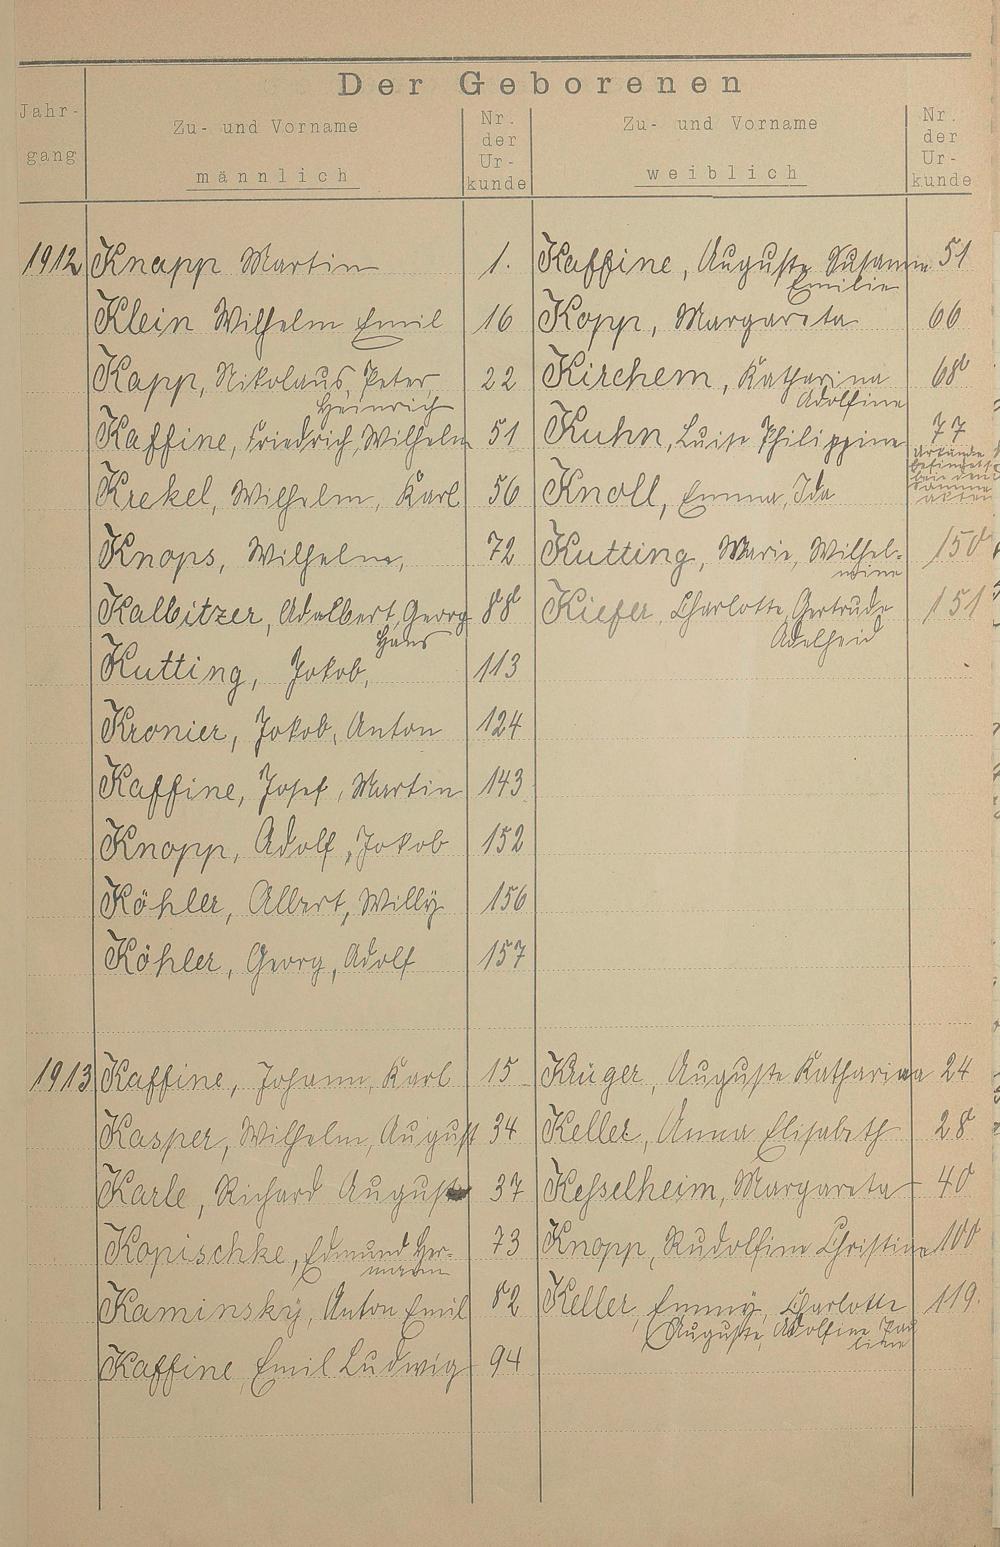 Der Geborenen
Jahr-
gang
Zu- und Vorname
männlich
Nr.
der
Ur-
kunde
Zu- und Vorname
weiblich
Nr.
der
Ur-
kunde
1912 Knapp Martin 1. Kaffine, Auguste Susanne 51
Emilie
Klein Wilhelm Emil 16 Kopp, Margareta 66
Kapp, Nikolaus, Peter 22 Kirchem, Katharina 68
Heinrich Adolfine
Kaffine, Friedrich, Wilhelm 51 Kuhn, Luise Philippine 77
Urkunde
befindet s
bei den
Samme
akten
Krekel, Wilhelm, Karl 56 Knoll, Emma, Ida
Knops, Wilhelm, 72 Kutting, Marie, Wilhel- 150
mine
Kalbitzer, Adalbert, Georg 88 Kiefer, Charlotte, Gertrude 151
Hans Adelheid
Kutting, Jakob, 113
Kronier, Jakob, Anton 124
Kaffine, Josef, Martin 143
Knopp, Adolf, Jakob 152
Köhler, Albert, Willÿ 156
Köhler, Georg, Adolf 157
1913 Kaffine, Johann, Karl 15 Krüger, Auguste Katharina 24
Kasper, Wilhelm, August 34 Keller, Anna Elisabeth 28
Karle, Richard August 37 Kesselheim, Margareta 40
Kopischke, Edmund Her- 73 Knopp, Rudolfine Christine 100
mann
Kaminskÿ, Anton Emil 82 Keller, Emmÿ, Charlotte 119.
Auguste, Adolfine Pau
line
Kaffine, Emil Ludwig 94